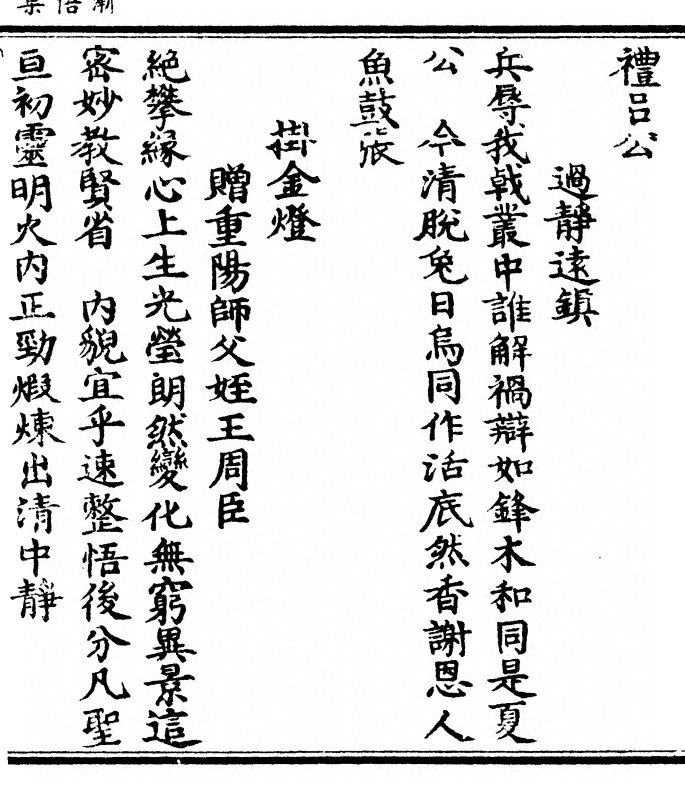 漸悟集
禮呂公
過靜遠鎮
兵辱我戟叢中誰解禍辯如鋒木和同是夏
公　今清脫兔日烏同作活底然香謝恩人
魚鼓張
掛金燈
贈重陽師父姪王周臣
絕攀緣心上生光瑩朗然變化無窮異景這
密妙教賢省　內貌宜乎速整悟後分凡聖
亘初靈明火內正勁煆煉出清中靜